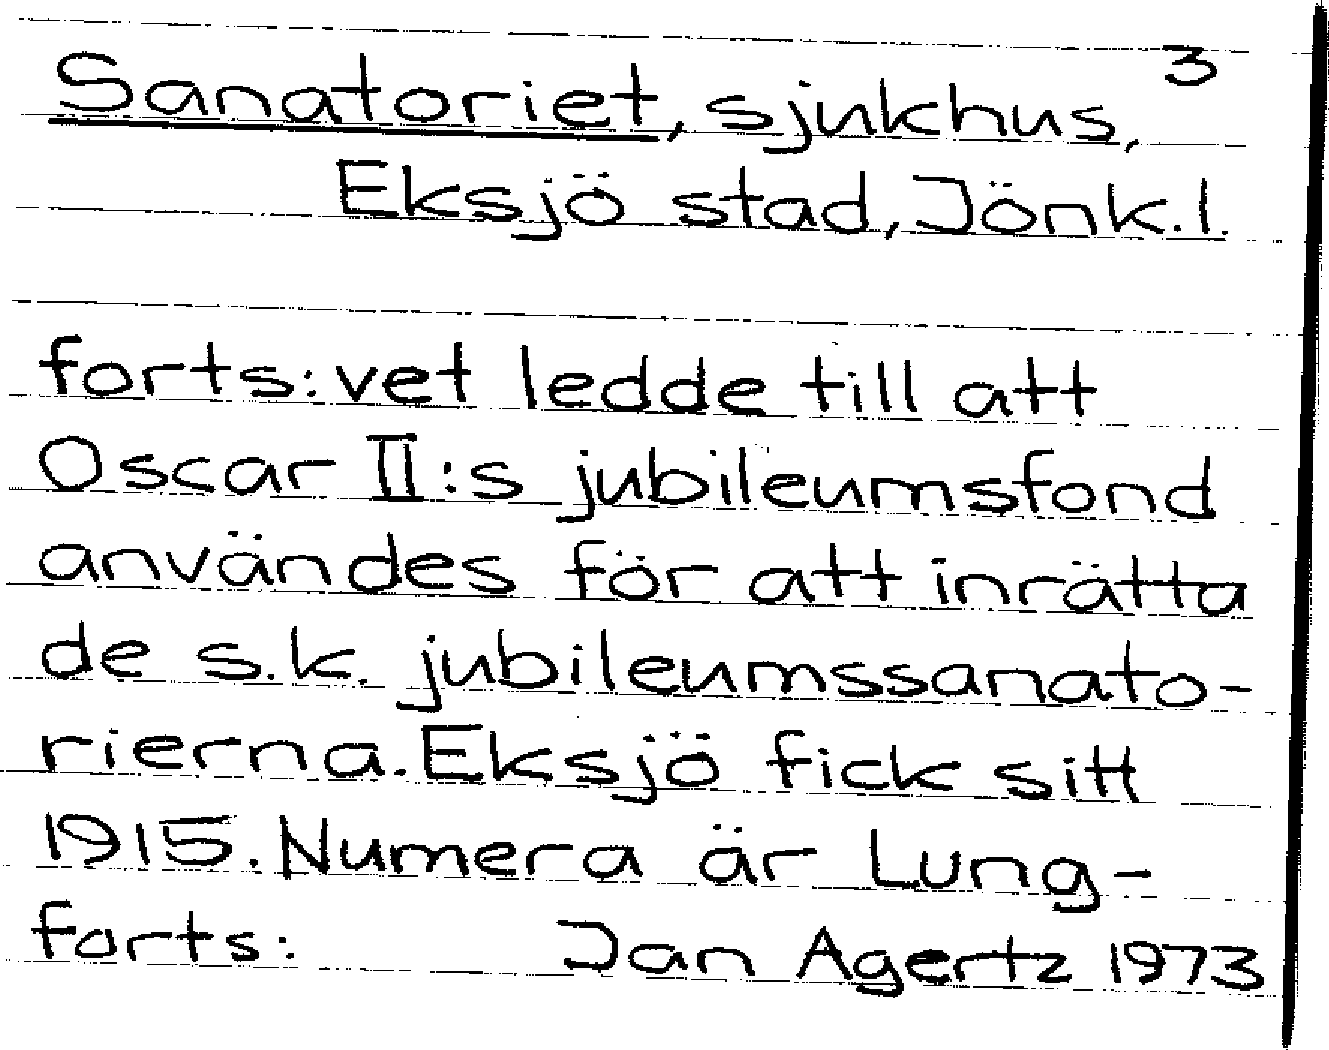 3
Sanatoriet, sjukhus,
Eksjö stad, Jönk.l.
forts: vet ledde till att
Oscar II:s jubileumsfond
användes för att inrätta
de s.k. jubileumssanato-
rierna. Eksjö fick sitt
1915. Numera är Lung-
forts: Jan Agertz 1973